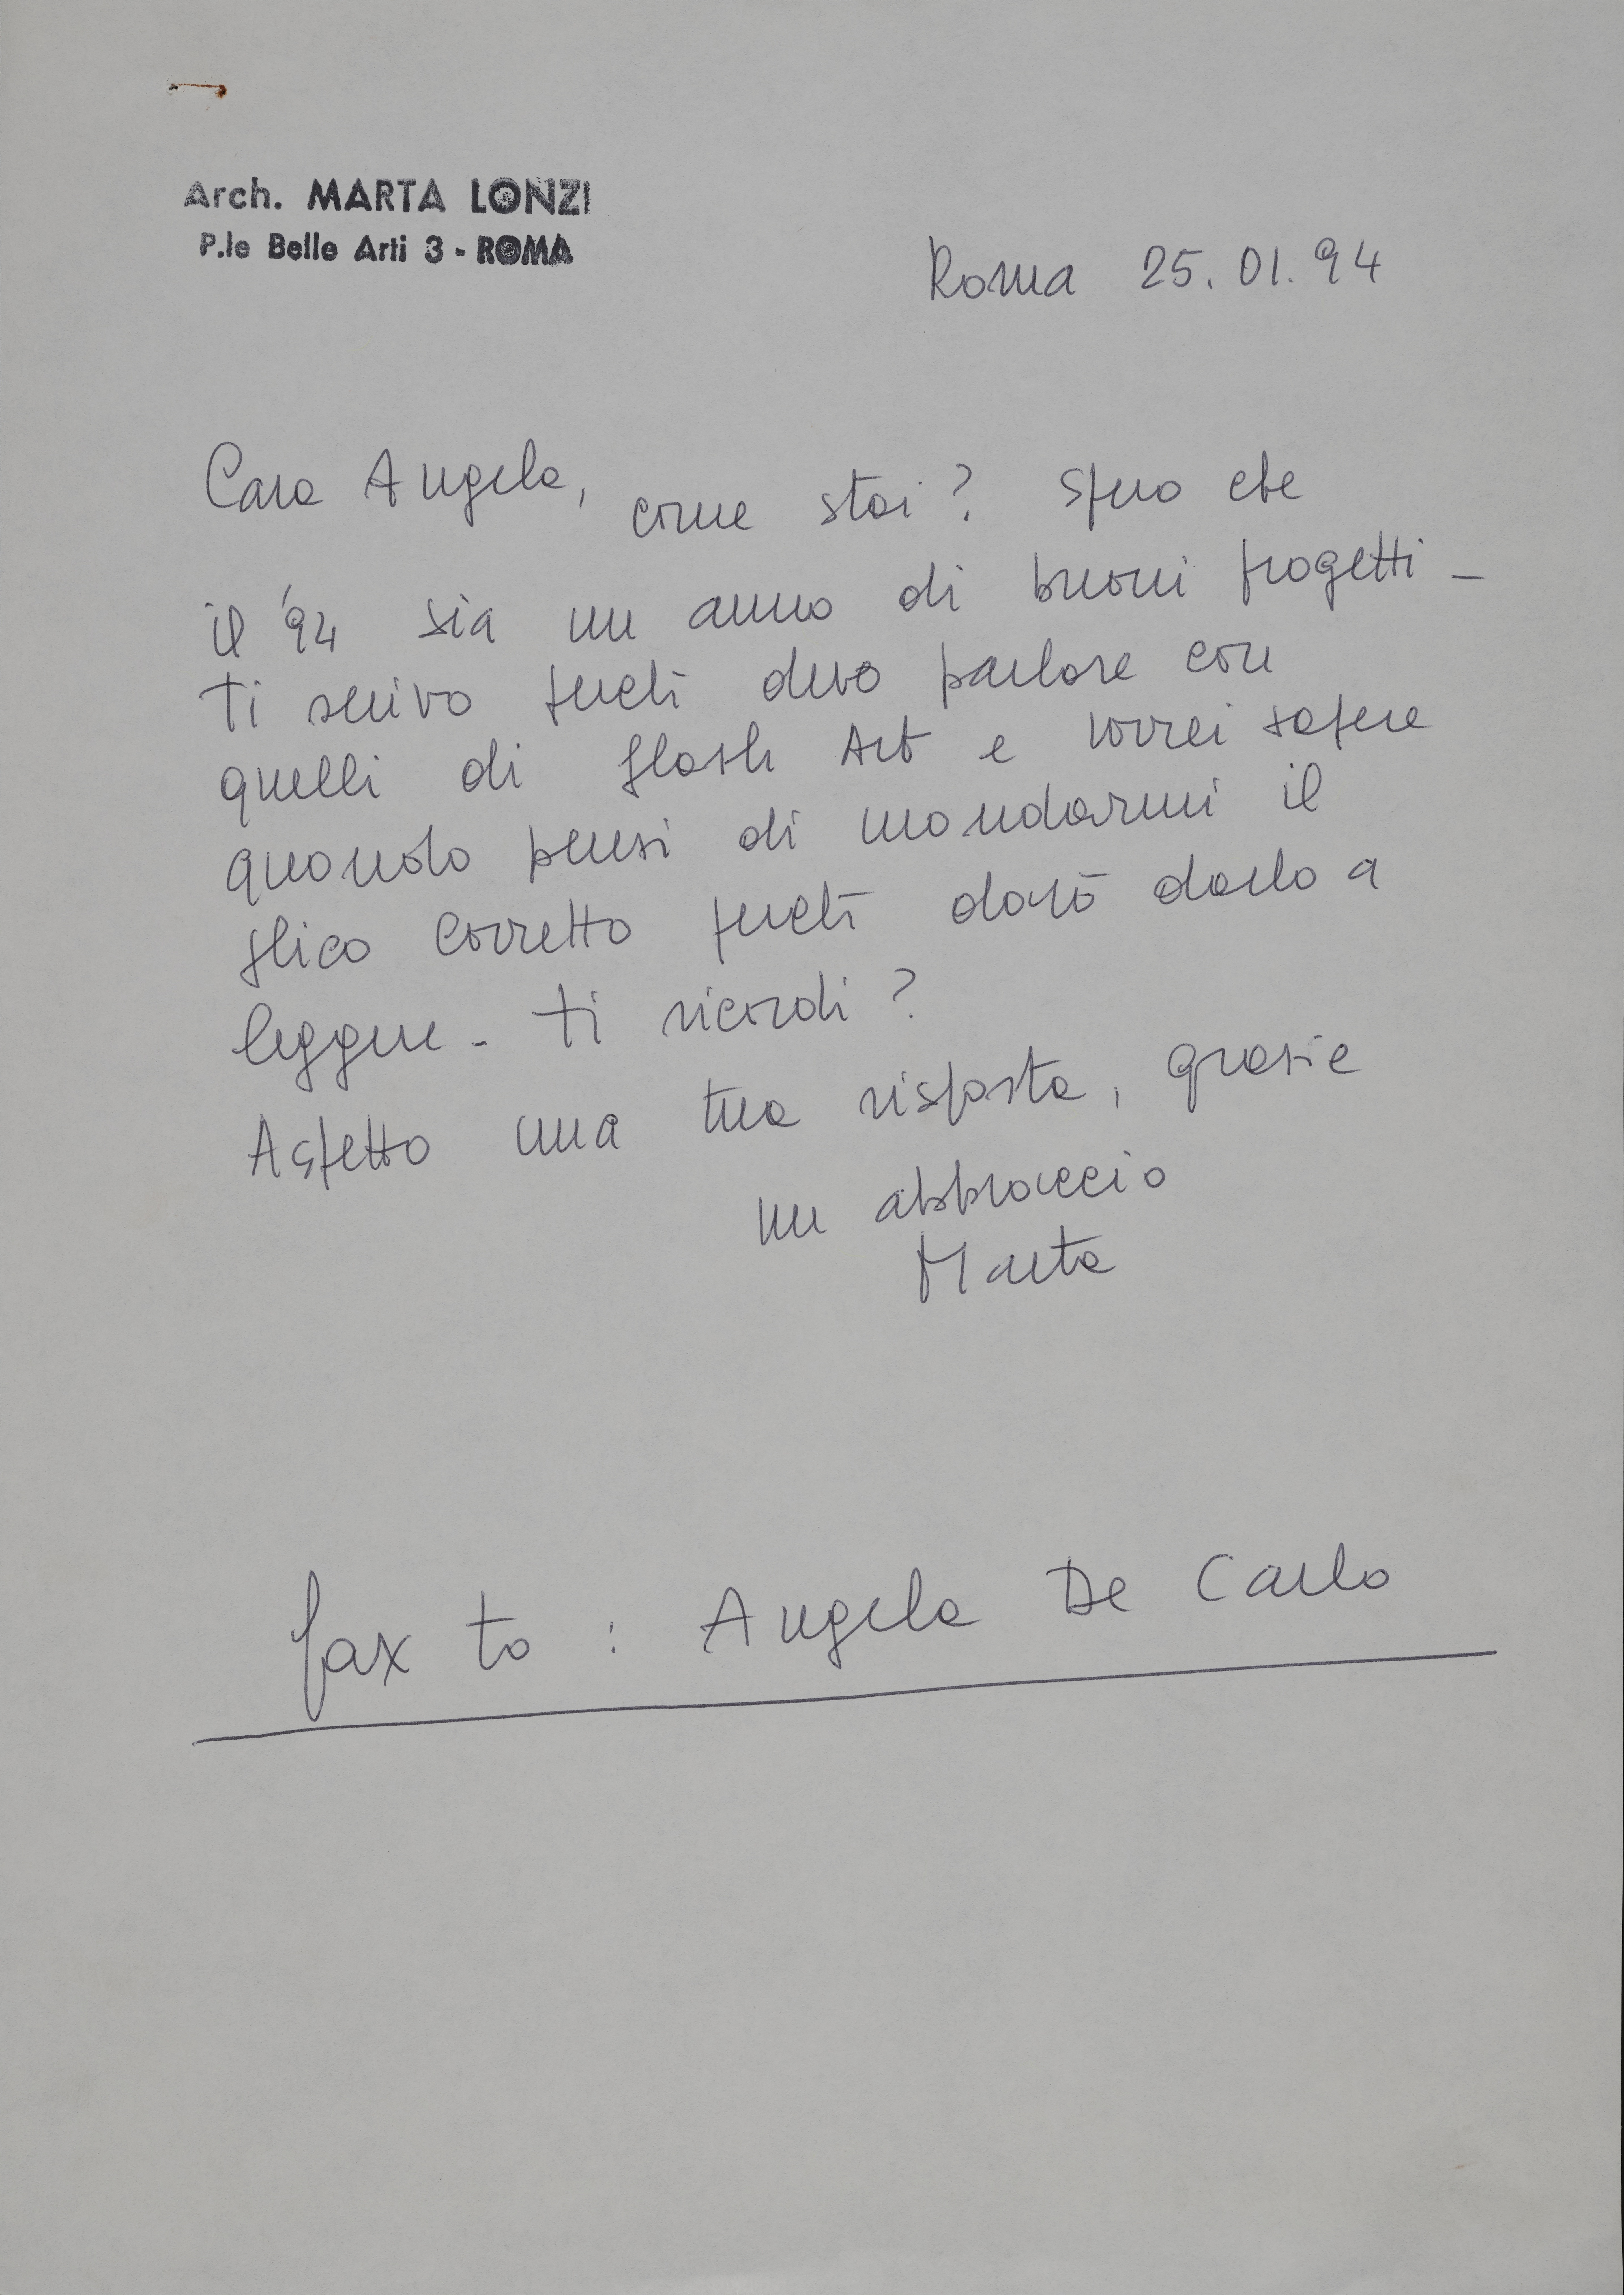 Arch. MARTA LONZI
P.le Belle Arti 3 - ROMA
Roma 25.01.94
Cara Angela, come stai? Spero che
il '94 sia un anno di buoni progetti -
Ti scrivo perchè devo parlare con
quelli di Flash Art e vorrei sapere
quando pensi di mandarmi il
plico corretto perchè dovrò darlo a
leggere - Ti ricordi?
Aspetto una tua risposta, grazie
un abbraccio
Marta
fax to : Angela De Carlo